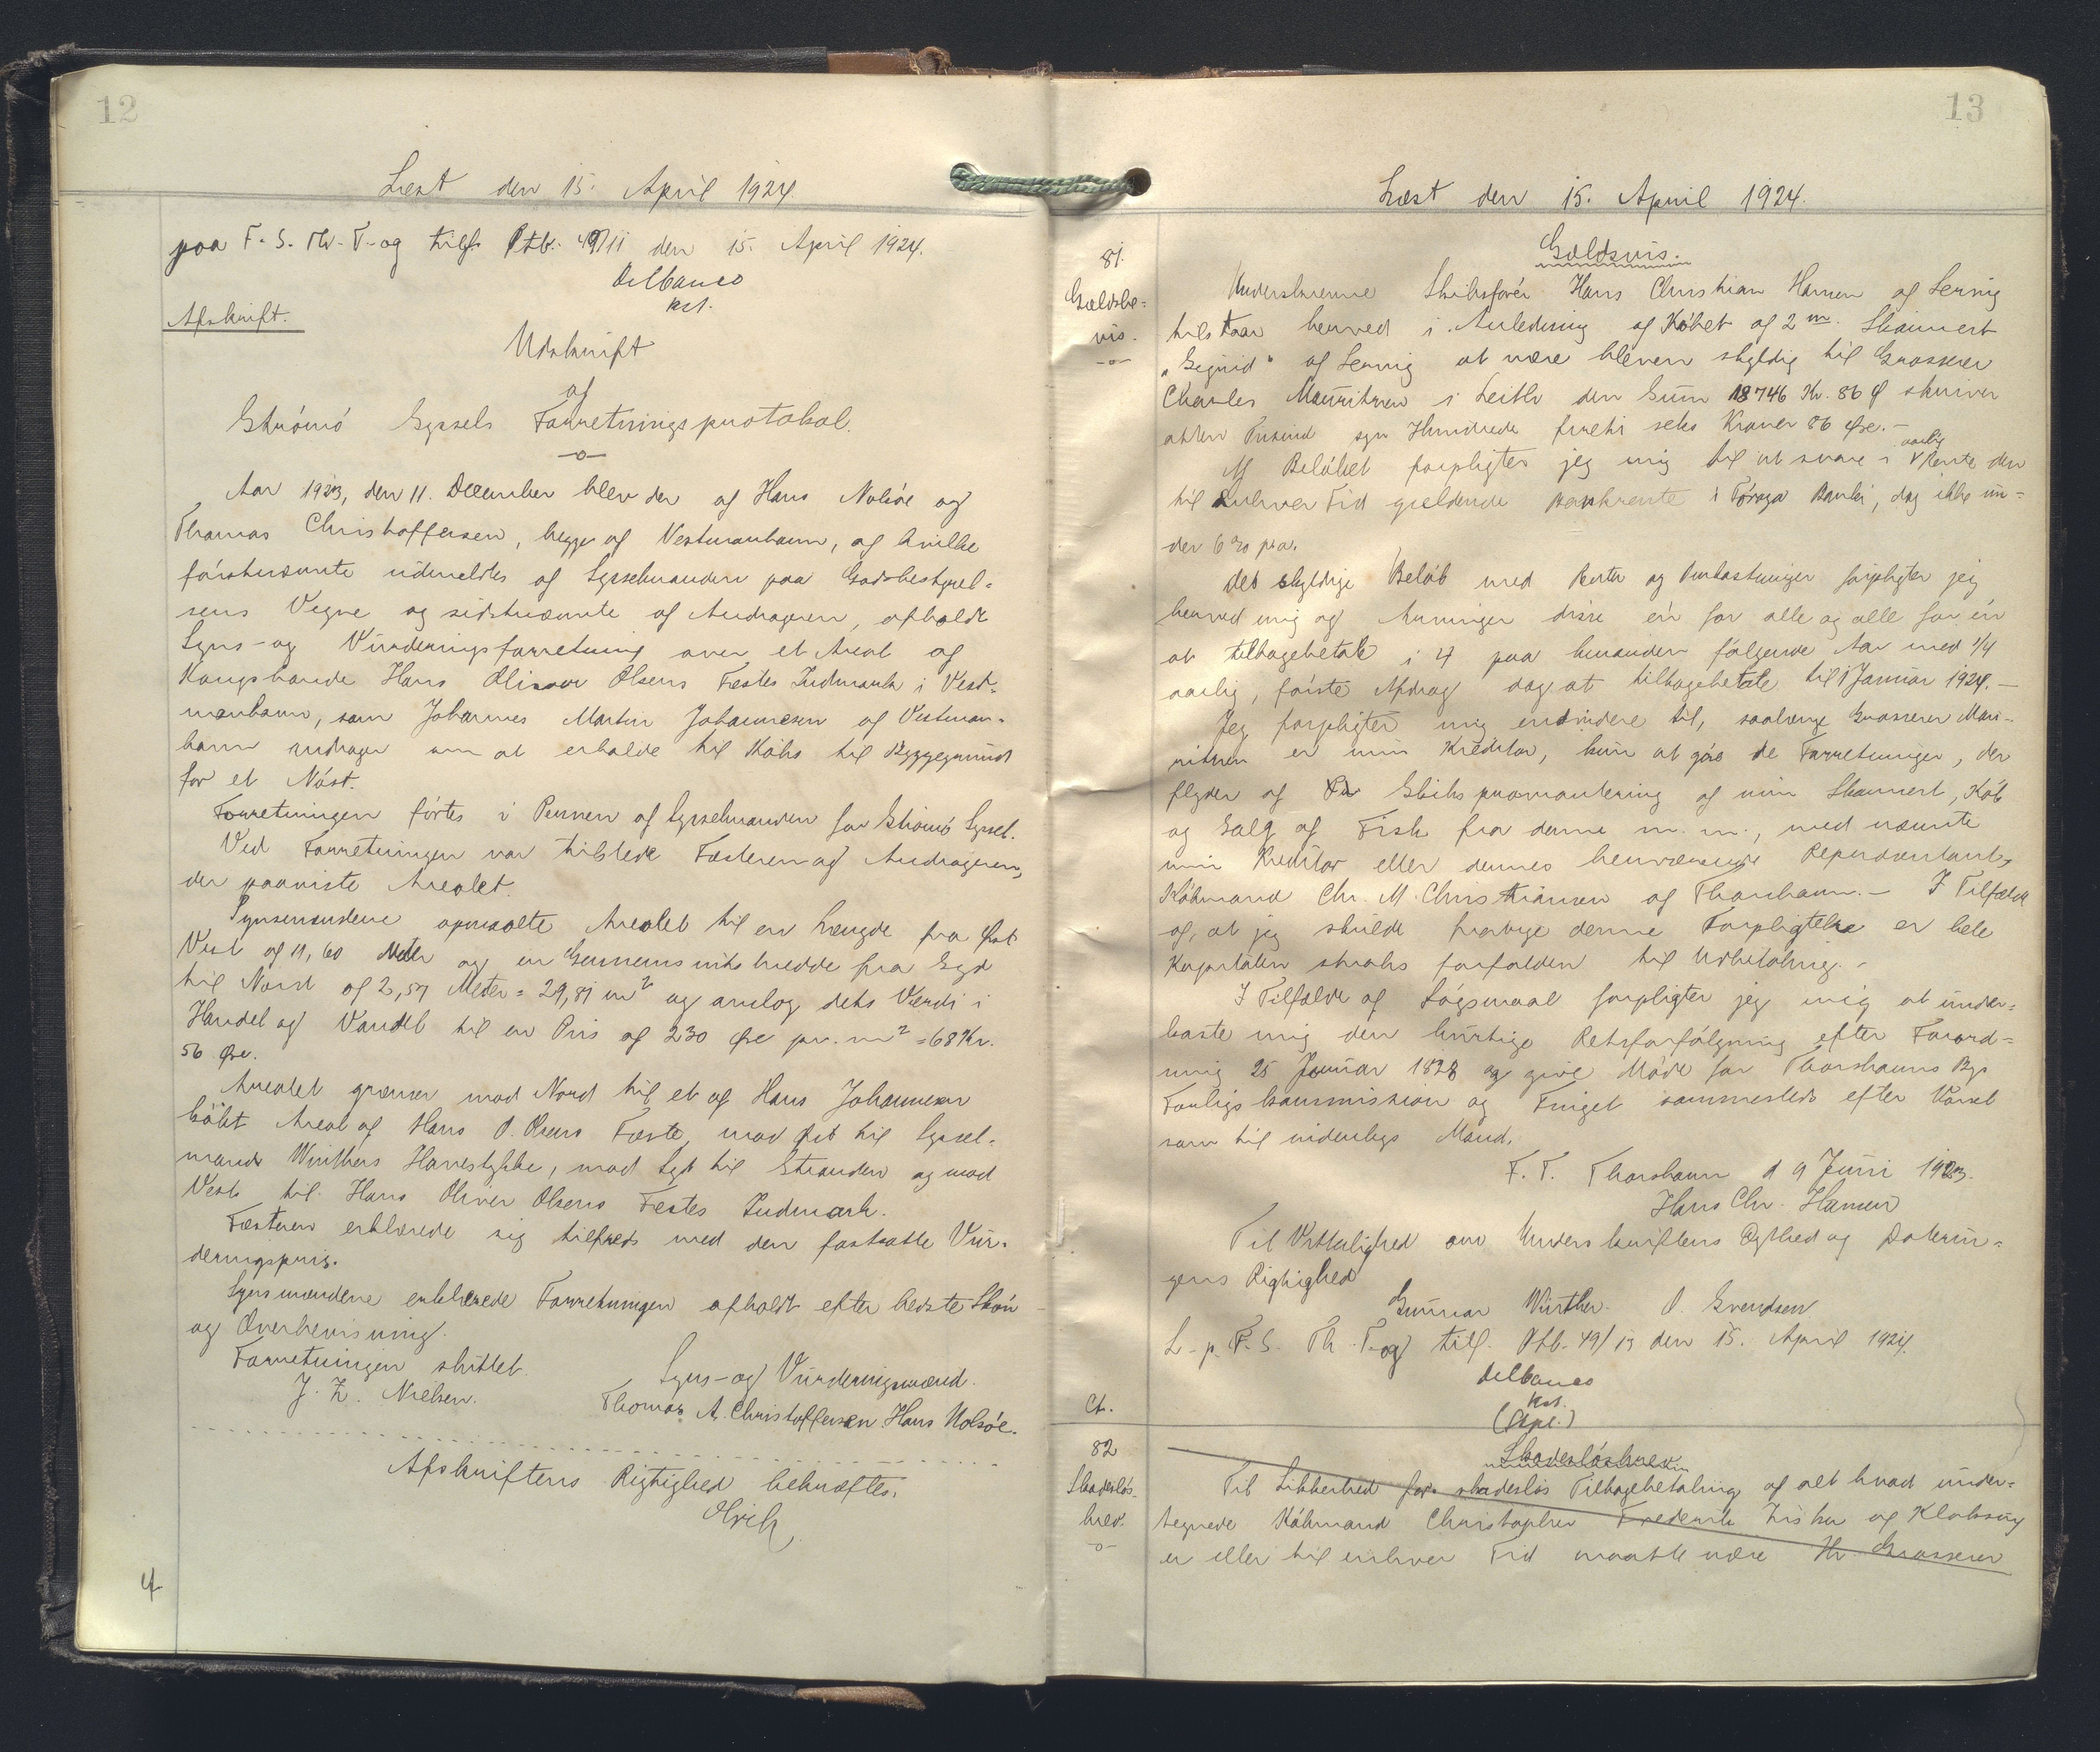 12
Læst den 15. April 1924.
paa F. S. Th. T. og tilf. Ptb. 49/11 den 15. April 1924.
Delbanco
kst.
Afskrift.
Udskrift
af
Strömö Syssels Forretningsprotokol.
Aar 1923, den 11. December blev der af Hans Nolsöe og
Thomas Christoffersen, begge af Vestmanhavn, af hvilke
förstnævnte udmeldtes af Sysselmanden paa Godsbestyrel-
sens Vegne og sidstnævnte af Andrageren, afholdt
Syns- og Vurderingsforretning over et Areal af
Kongsbonde Hans Oliver Olsens Fæstes Indmark i Vest-
manhavn, som Johannes Martin Johannesen af Vestman-
havn andrager om at erholde til Köbs til Byggegrund
for et Nöst.
Forretningen förtes i Pennen af Sysselmanden for Strömö Syssel.
Ved Forretningen var tilstede Fæsteren og Andrageren,
der paaviste Arealet.
Synsmændene opmaalte Arealet til en Længde fra Øst
Vest af 11,60 Meter og en Gennemsnitsbredde fra Syd
til Nord af 2,57 Meter = 29,81 m² og anslog dets Værdi i
Handel og Vandel til en Pris af 230 Øre pr. m² = 68 Kr.
56 Øre.
Arealet grænser mod Nord til et af Hans Johannesen
köbt Areal af Hans O. Olsens Fæste, mod Øst til Syssel-
mand Winthers Havestykke, mod Syd til Stranden og mod
Vest til Hans Oliver Olsens Fæstes Indmark.
Fæsteren erklærede sig tilfreds med den fastsatte Vur-
deringspris.
Synsmændene erklærede Forretningen afholdt efter bedste Skön
og Overbevisning.
Forretningen sluttet.
Syns- og Vurderingsmænd.
J. Z. Nielsen.
Thomas A. Christoffersen Hans Nolsöe.
Afskriftens Rigtighed bekræftes.
4
13
Læst den 15. April 1924.
81.
Gældsbe-
vis.
Gældsvis.
Underskrevne Skibsförer Hans Christian Hansen af Sørvig
tilstaar herved i Anledning af Köbet af 2 m. Skonnert
"Sigrid" af Sørvig at være bleven skyldig til Grosserer
Charles Mauritzen i Leith den Sum 18746 Kr. 86 Ø skriver
atten Tusind syv Hundrede fireti seks Kroner 86 Øre.-
Af Belöbet forpligter jeg mig til at svare i aarlig Rente den
til enhver Tid gældende Bankrente i Föroya Banki, dog ikke un-
der 6 % p.a.
Det skyldige Belöb med Renter og Omkostninger forpligter jeg
herved mig og Arvinger disse én for alle og alle for én
at tilbagebetale i 4 paa hinanden fölgende Aar med 1/4
aarlig, förste Afdrag dog at tilbagebetale til 1 Januar 1924.-
Jeg forpligter mig endvidere til, saalænge Grosserer Mau-
ritzen er min Kreditor, kun at göre de Forretninger, der
flyder af Skibsproviantering af min Skonnert, Köb
og Salg af Fisk fra denne m. m., med nævnte
min Kreditor eller dennes herværende Repræsentant,
Köbmand Chr. M. Christiansen af Thorshavn.- I Tilfælde
af, at jeg skulde fravige denne Forpligtelse er hele
Kapitalen straks forfalden til Udbetaling.-
I Tilfælde af Sögsmaal forpligter jeg mig at under-
kaste mig den hurtige Retsforfölgning efter Forord-
ning 25 Januar 1828 og give Möde for Thorshavns Bys
Forligskommission og Tinget sammesteds efter Varsel
som til indenbys Mand.
F. T. Thorshavn d 9 Juni 1923.
Hans Chr. Hansen
Til Vitterlighed om Underskriftens Ægthed og Daterin-
gens Rigtighed
Gunnar Winther. O. Svendsen
L. p. F. S. Th. T. og tilf. Ptb. 49/13 den 15. April 1924.
Delbanco
kst.
Ct.
82
Skadeslös-
brev.
Skadeslösbrev
Til Sikkerhed for skadeslös Tilbagebetaling af alt hvad under-
tegnede Köbmand Christopher Frederik Ziska af Klaksvig
er eller til enhver Tid maatte være Hr. Grosserer